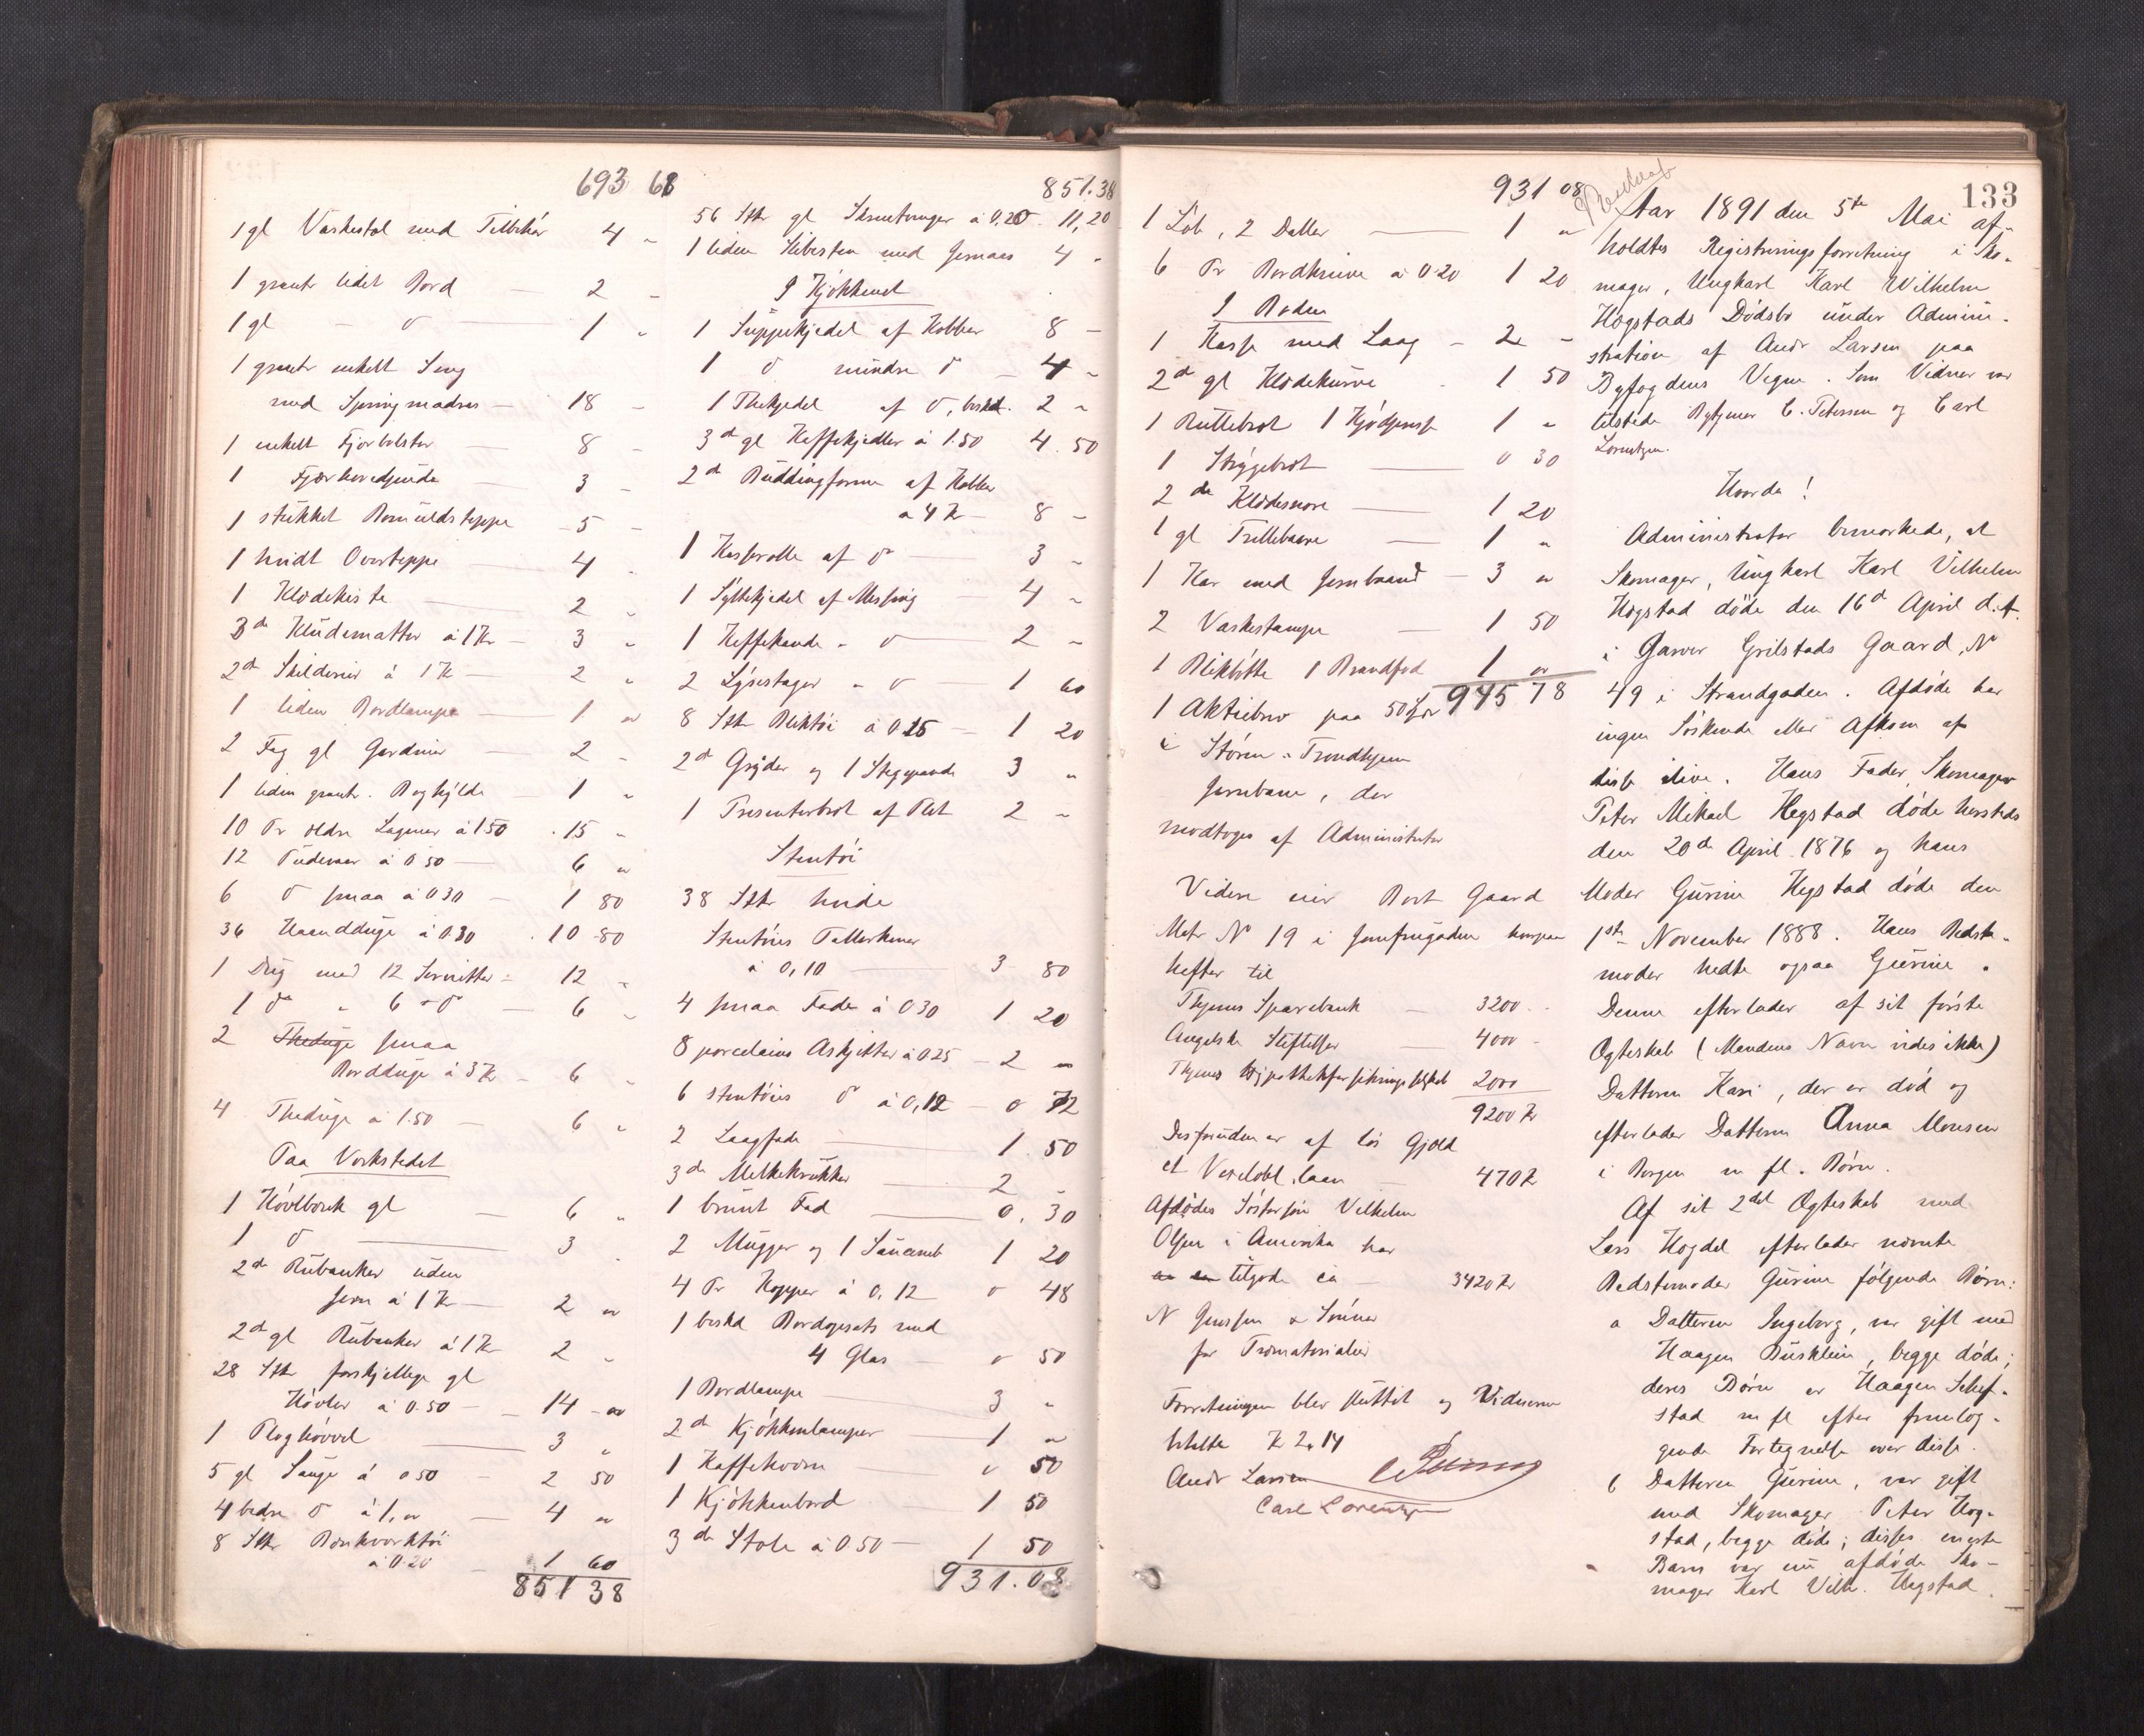 693 68
1 gl Vaskestol med Tilbehør 4 "
1 grønt lidet Bord — 2 "
1 gl — do — 1 "
1 grønt enkelt Seng
med Springmadras — 18 "
1 enkelt Fjærbolster — 8 "
1 Fjærhovedpude — 3 "
1 stukket Bomuldsteppe — 5 "
1 hvidt Overteppe — 4 "
1 Klædekiste — 2 "
3de Kludematter á 1 Kr — 3 "
2de Skilderier á 1 Kr — 2 "
1 liden Bordlampe — 1 "
2 Fag gl Gardiner — 2 "
1 liden grønt. Boghylde — 1 "
10 Pr ældre Lagener á 1 50 . 15 "
12 Pudevaar á 0 50 — 6 "
6 do smaa á 0 30 — 1 80
36 Haandduge á 0.30 . 10 80
1 Dug med 12 Servietter — 12 "
1 do " 6 " do — 6 "
2 Theduge smaa
Bordduge á 3 Kr — 6 "
4 Theduge á 1.50 — 6 "
Paa Verkstedet
1 Høvlbænk gl — 6 "
1 do — 3 "
2de Rubanker uden
Jern á 1 Kr — 2 "
2de gl Rubanker á 1 Kr 2 "
28 Stk forskjellige gl
Høvler á 0.50 — 14 "
1 Ploghøvel — 3 "
5 gl Sauge á 0 50 — 2 50
4 bedre do á 1, " — 4 "
8 Stk Bænkverktøi
á 0.20 — 1 60
851 38
851.38
56 Stk gl Skruetvinger á 0,20 . 11,20
1 liden Slibesten med 4 "
I Kjøkkenet
1 Suppekjedel af Kobber 8 —
1 do mindre do — 4 "
1 Thekjedel af do, beskd. 2 "
3de gl Kaffekjedler á 1.50 4.50
2de Buddingforme af Kobber
á 4 Kr — 8 "
1 Kasserolle af do — 3 "
1 Syltekjedel af Messing — 4 "
1 Kaffekande " do — 2 "
2 Lysestager " do — 1 60
8 Stk Bliktøi á 0 15 — 1 20
2de Gryder og 1 Stegepande 3 "
1 Presenterbret af Blik 2 "
Stentøi
38 Stk hvide
Stentøies Tallerkener
á 0,10 — 3 80
4 smaa Fade á 0 30 1 20
8 porcelains Askjetter á 0 25 — 2 "
6 stentøies do á 0,12 — 0 72
2 Laagfade — 1.50
3de Melkekrukker — 2 "
1 brunt Fad — 0.30
2 Mugger og 1 1 20
4 Pr Kopper á 0,12 0 48
1 beskd Bordopsats med
4 Glas — 0 50
1 Bordlampe — 3 "
2de Kjøkkenlamper — 1 "
1 Kaffekværn — 0 50
1 Kjøkkenbord 1 50
3de Stole á 0 50 — 1 50
931.08
931 08
1 , 2 Daller — 1 "
6 Pr Bordknive á 0.20 1 20
I Boden
1 Kasse med Laag — 2 —
2de gl Klædekurve . 1 50
1 1 1 "
1 Strygebret — 0 30
2de Klædesnore — 1 20
1 gl Trillebaare — 1 "
1 Kar med Jernbaand — 3 "
2 Vaskestamper — 1 50
1 Bliksbøtte 1 Brandfad 1 "
945 78
1 Aktiebrev paa 50 Spdr
i Støren-Trondhjem
Jernbane, der
modtoges af Administrator
Videre eier Boet Gaard
Matr No 19 i Jomfrugaden hvorpaa
hefter til
Thjems Sparebank — 3200 —
Angelske Stiftelser — 4000 —
Thjems Hypothekforsikringsselskab 2000
9200 Kr
Desforuden er af løs Gjæld
et Vexelobl. laan — 470 Kr
Afdødes Søstersøn Vilhelm
Olsen i Amerika har
tilgode ca — 3420 Kr
N Jenssen & Sønner
for Træmaterialier
Forretningen blev sluttet og Vidnerne
betalte K 2.14
Andr Larsen
Carl Lorentzen
133
Aar 1891 den 5te Mai af-
holdtes Registreringsforretning i Sko-
mager, Ungkarl Karl Wilhelm
Høgstads Dødsbo under Admini-
stration af Andr Larsen paa
Byfogdens Vegne. Som Vidner var
tilstede C. Petersen og Carl
Lorentzen.
Hvorda!
Administrator bemærkede, at
Skomager, Ungkarl Karl Vilhelm
Høgstad døde den 16de April d.A.
i Garver Grilstads Gaard, No
49 i Strandgaden. Afdøde har
ingen Søskende eller Afkom af
disse ilive. Hans Fader, Skomager
Peter Mikael Høgstad døde hersteds
den 20de April 1876 og hans
Moder Gurine Høgstad døde den
1ste November 1888. Hans Bedste-
moder hedte ogsaa Gurine.
Denne efterlader af sit første
Ægteskab (Mandens Navn vides ikke)
Datteren Kari, der er død og
efterlader Datteren Anna Monsen
i Bergen m fl. Børn.
Af sit 2det Ægteskab med
Lars Hogdel efterlader nævnte
Bedstemoder Gurine følgende Børn:
a Datteren Ingeborg, var gift med
Haagen Busklein, begge døde;
deres Børn er Haagen Schef-
stad m fl efter fremlæg-
gende Fortegnelse over disse.
b Datteren Gurine, var gift
med Skomager Peter Høg-
stad, begge døde; disses eneste
Barn var nu afdøde Sko-
mager Karl Vilh. Høgstad.